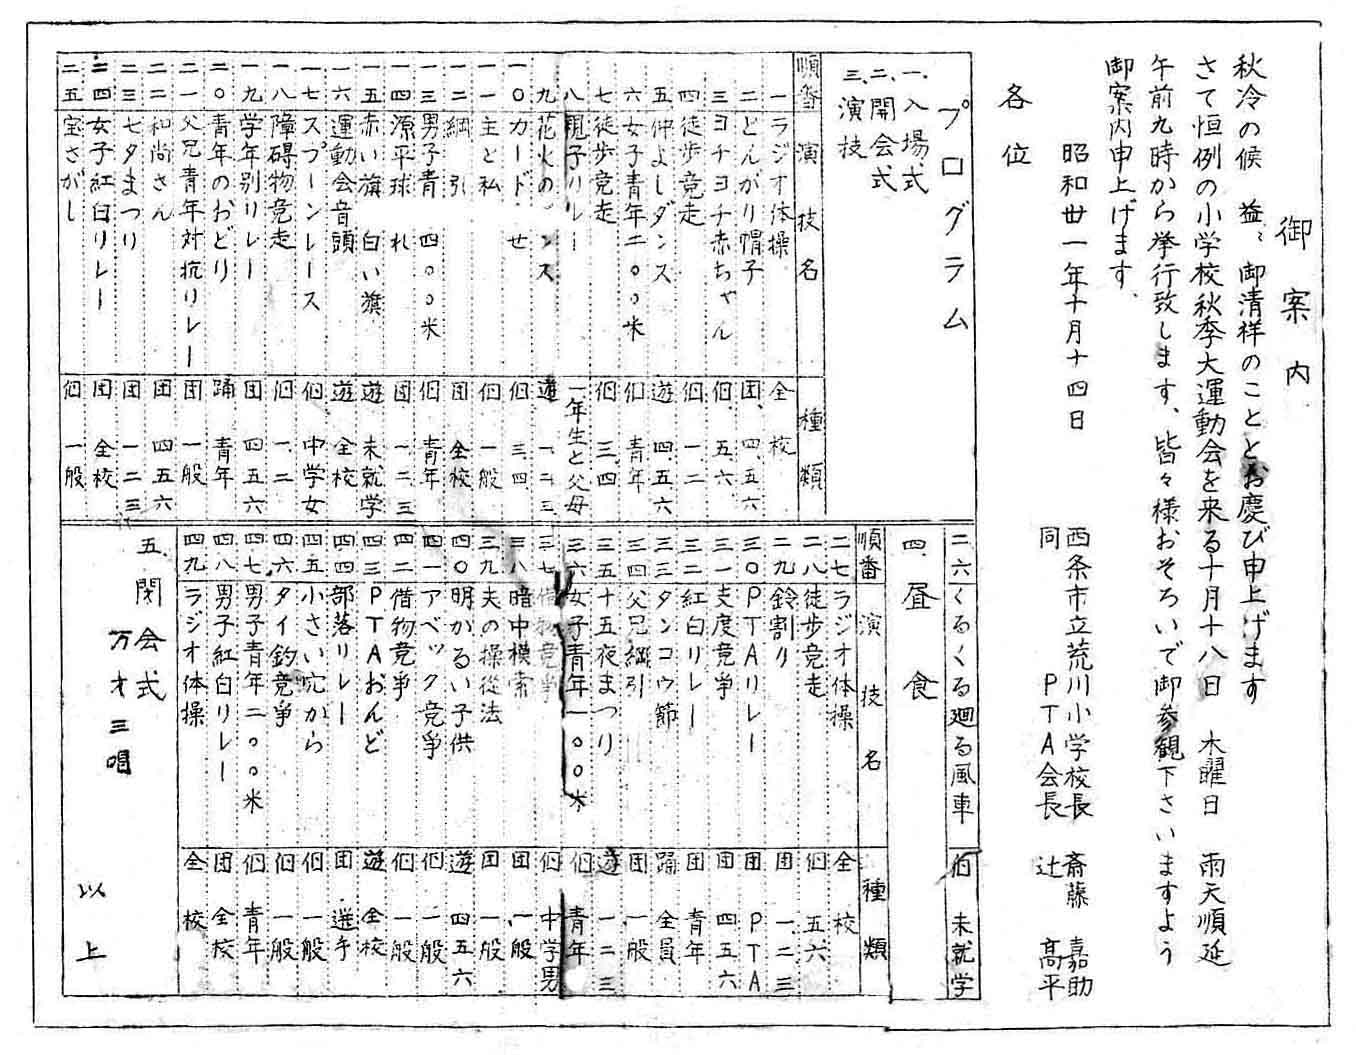 御案内
秋冷の候 益々御清祥のこととお慶び申上げます
さて恒例の小学校秋季大運動会を来る十月十八日 木曜日 雨天順延
午前九時から挙行致します、皆々様おそろいで御参観下さいますよう
御案内申上げます、
昭和卅一年十月十四日
西条市立荒川小学校長 斎藤嘉助
同 PTA会長 辻高平
各位
プログラム
一、入場式
二、開会式
三、演技
順番 演技名 種類
一 ラジオ体操 全校
二 とんがり帽子 団、四、五六
三 ヨチヨチ赤ちゃん 個、五、六
四 徒歩競走 個 一二
五 仲よしダンス 遊 四、五六
六 女子青年二〇〇米 個 青年
七 徒歩競走 個 三、四
八 親子リレー 一年生と父母
九 花火の ンス 遊 一、二、三
一〇 カード・せ 個 三、四
一一 主と私 個 一般
一二 綱引 団 全校
一三 男子青 四〇〇米 個 青年
一四 源平球 れ 団 一、二三
一五 赤い旗 白い旗 遊 未就学
一六 運動会音頭 遊 全校
一七 スプーンレース 個 中学女
一八 障碍物競走 個 一、二
一九 学年別リレー 団 四五六
二〇 青年のおどり 踊 青年
二一 父兄青年対抗リレー 団 一般
二二 和尚さん 団 四五六
二三 七夕まつり 団 一二三
二四 女子紅白リレー 団 全校
二五 宝さがし 個 一般
二六 くるくる廻る風車 個 未就学
四、昼食
順番 演技名 種類
二七 ラジオ体操 全校
二八 徒歩競走 個 五六
二九 鈴割り 団 一、二三
三〇 PTAリレー 団 PTA
三一 支度競争 団 四五六
三二 紅白リレー 団 青年
三三 タンコウ節 踊 全員
三四 父兄綱引 団 一般
三五 十五夜まつり 遊 一二三
三六 女子青年一〇〇米 個 青年
三七 借物競争 個 中学男
三八 暗中模索 団 一般
三九 夫の操従法 団 一般
四〇 明かるい子供 遊 四五六
四一 アベック競争 個 一般
四二 借物競争 個 一般
四三 PTAおんど 遊 全校
四四 部落リレー 団 選手
四五 小さい穴から 個 一般
四六 タイ釣競争 個 一般
四七 男子青年二〇〇米 個 青年
四八 男子紅白リレー 団 全校
四九 ラジオ体操 全校
五、閉会式
万才三唱
以上